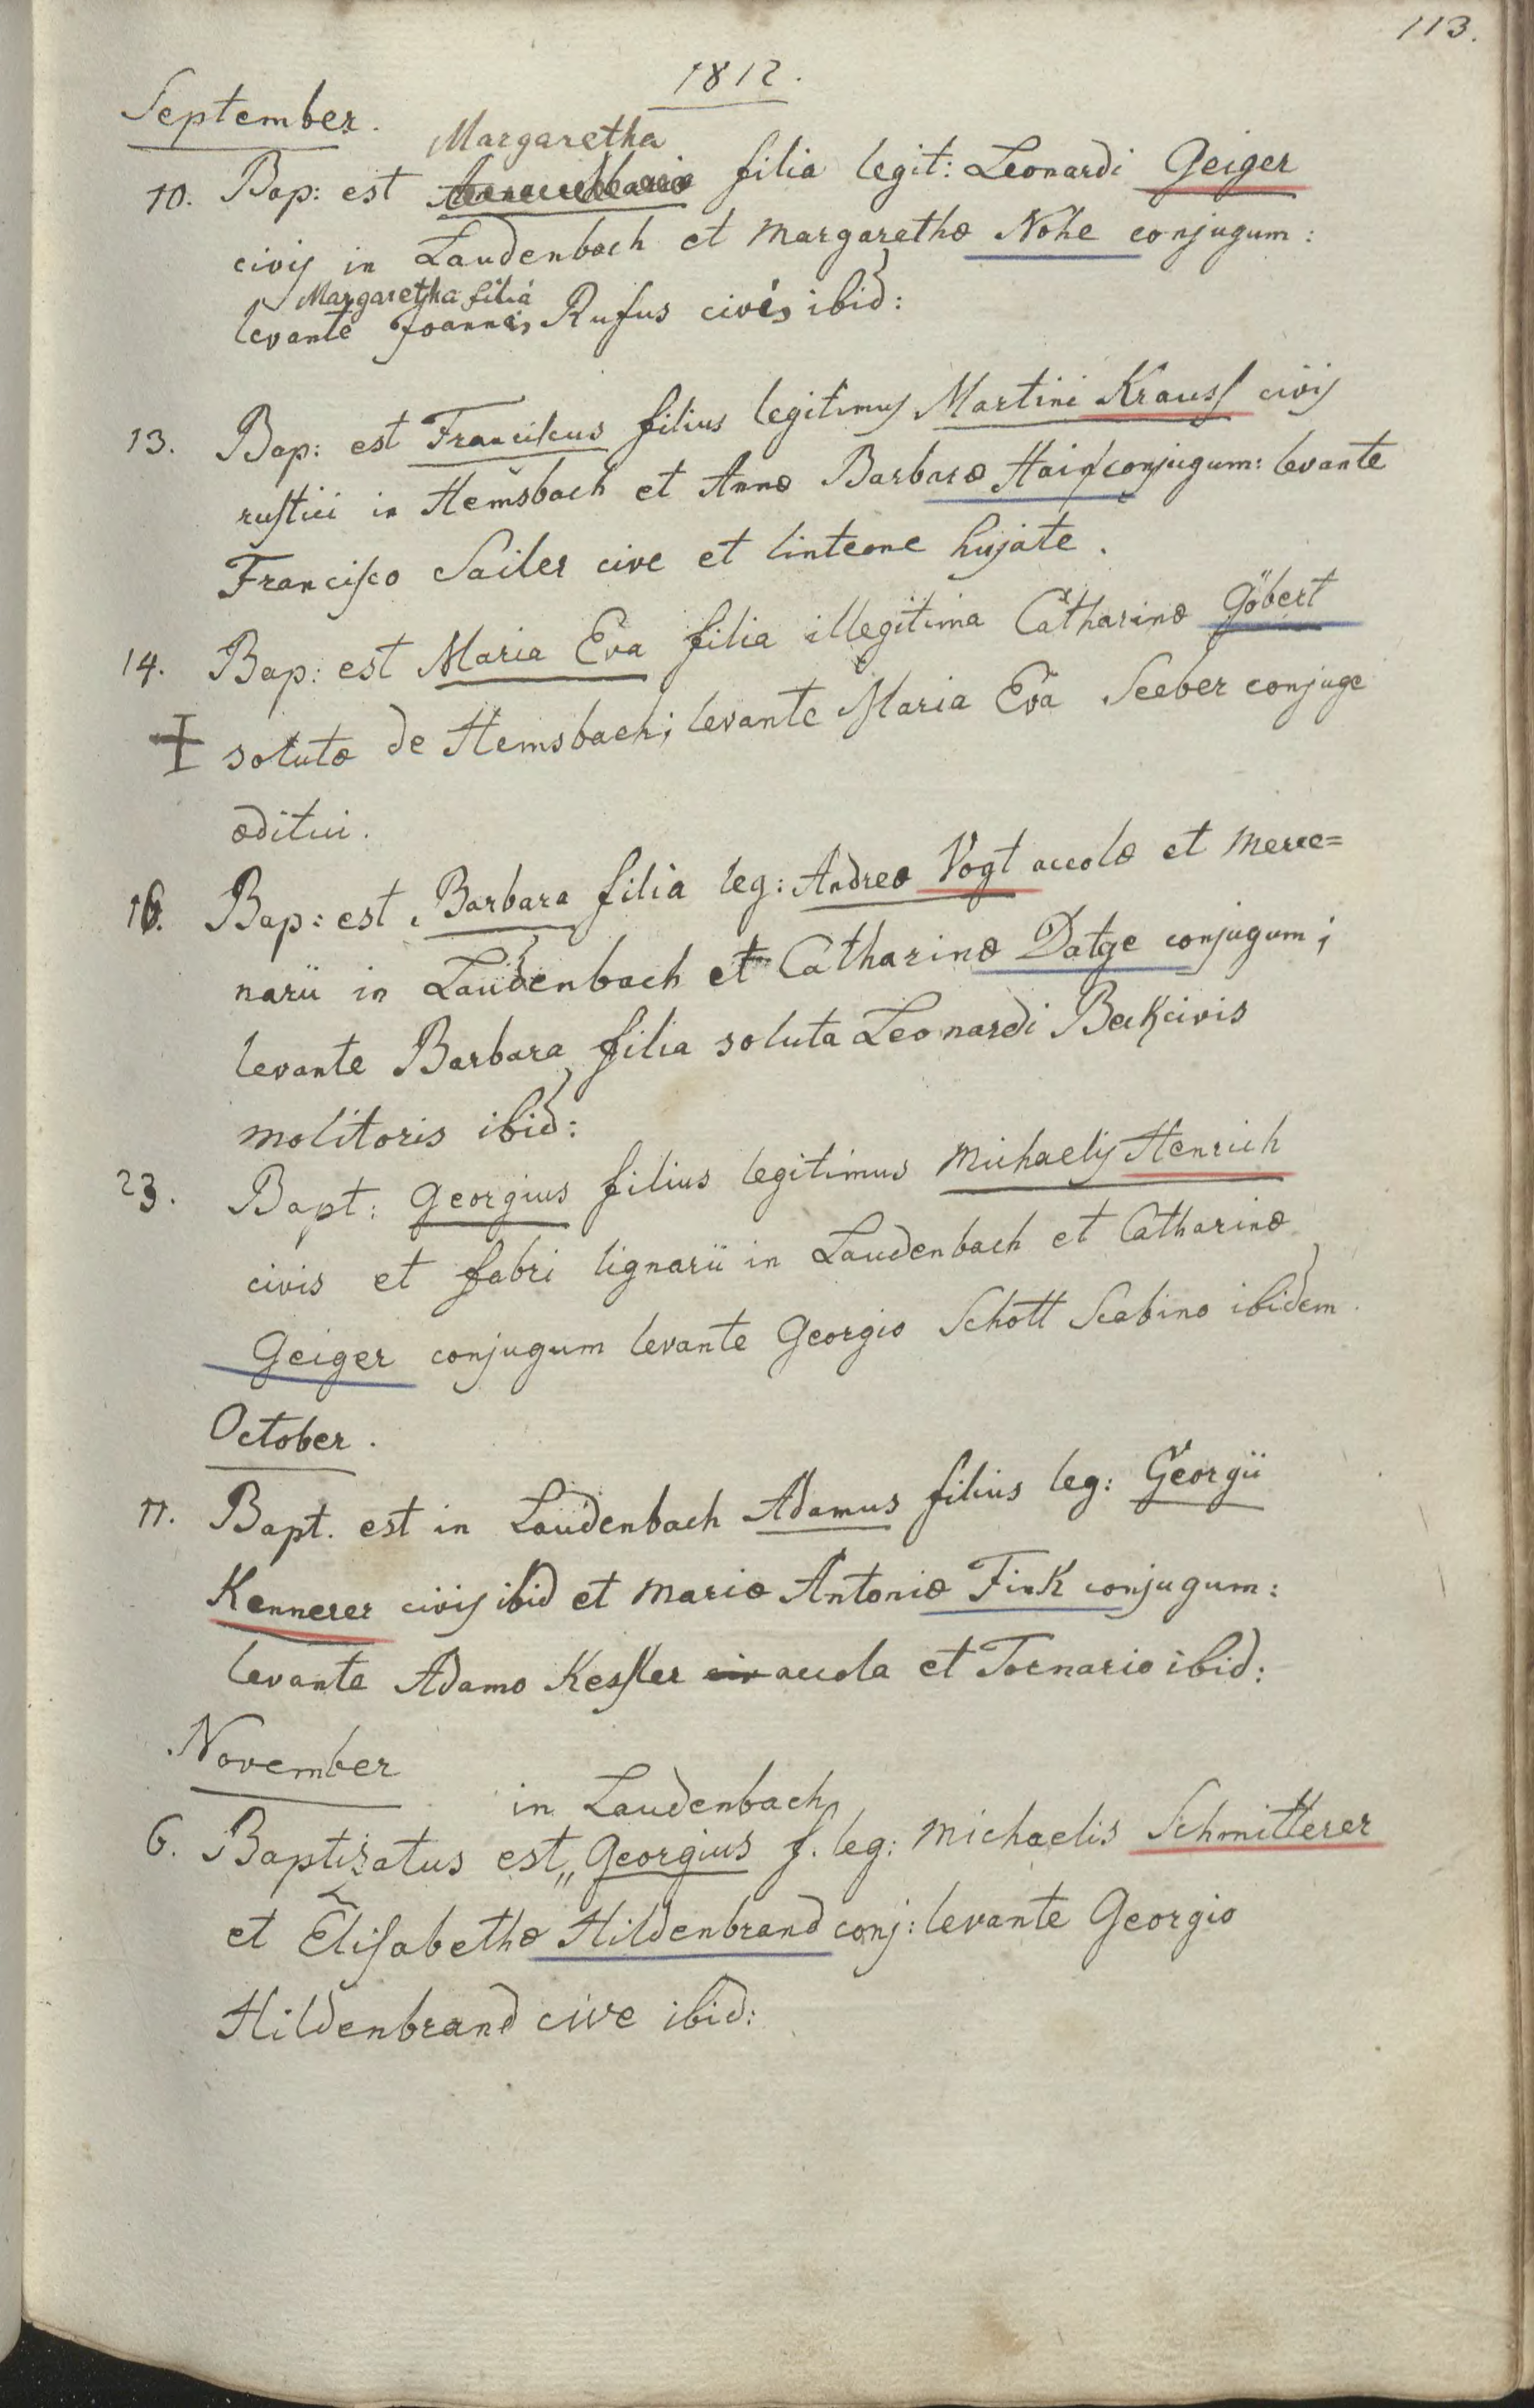 113.
1812.
September.
Margaretha
10. Bap: est filia legit: Leonardi Geiger
civis in Laudenbach et Margarethæ Nohe conjugum:
Margaretha filiâ
levante Joannis Rufus civis ibid:
13. Bap: est Franciscus filius legitimus Martini Krauss civis
rustici in Hemsbach et Annæ Barbaræ Hain conjugum: levante
Francisco Sailer cive et linteone hujate.
14. Bap: est Maria Eva filia illegitima Catharinæ Göbert
solutæ de Hemsbach; levante Maria Eva Seeber conjuge
æditui.
16. Bap: est Barbara filia leg: Andreæ Vogt accolæ et merce=
narii in Laudenbach et Catharinæ Datge conjugum;
levante Barbara filia soluta Leonardi Beck civis
molitoris ibid:
23. Bapt: Georgius filius legitimus Michaelis Henrich
civis et fabri lignarii in Laudenbach et Catharinæ
Geiger conjugum levante Georgio Schott Scabino ibidem.
October.
11. Bapt. est in Laudenbach Adamus filius leg: Georgii
Kennerer civis ibid et Mariæ Antoniæ Fink conjugum:
levante Adamo Kessler civ accola et Tornario ibid:
November
in Laudenbach
6. Baptizatus est,, Georgius f. leg: Michaelis Schmitterer
et Elisabethæ Hildenbrand conj: levante Georgio
Hildenbrand cive ibid: